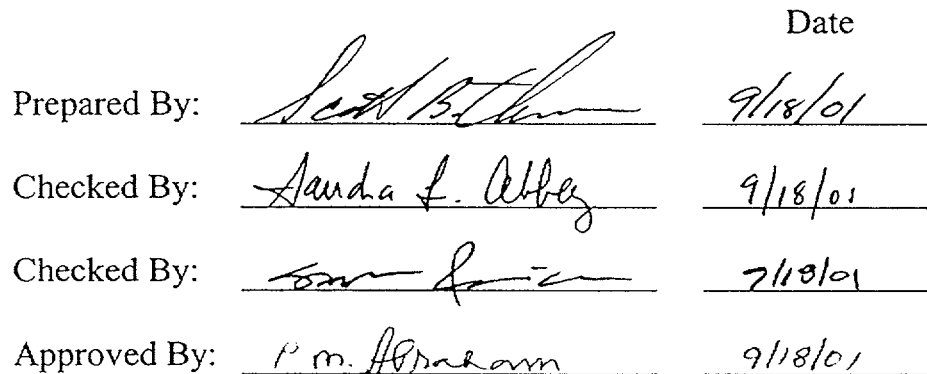 Date
Prepared By: Scott B. 9/18/01
Checked By: Sandra L. Abbey 9/18/01
Checked By: 9/18/01
Approved By: P. M. Abraham 9/18/01